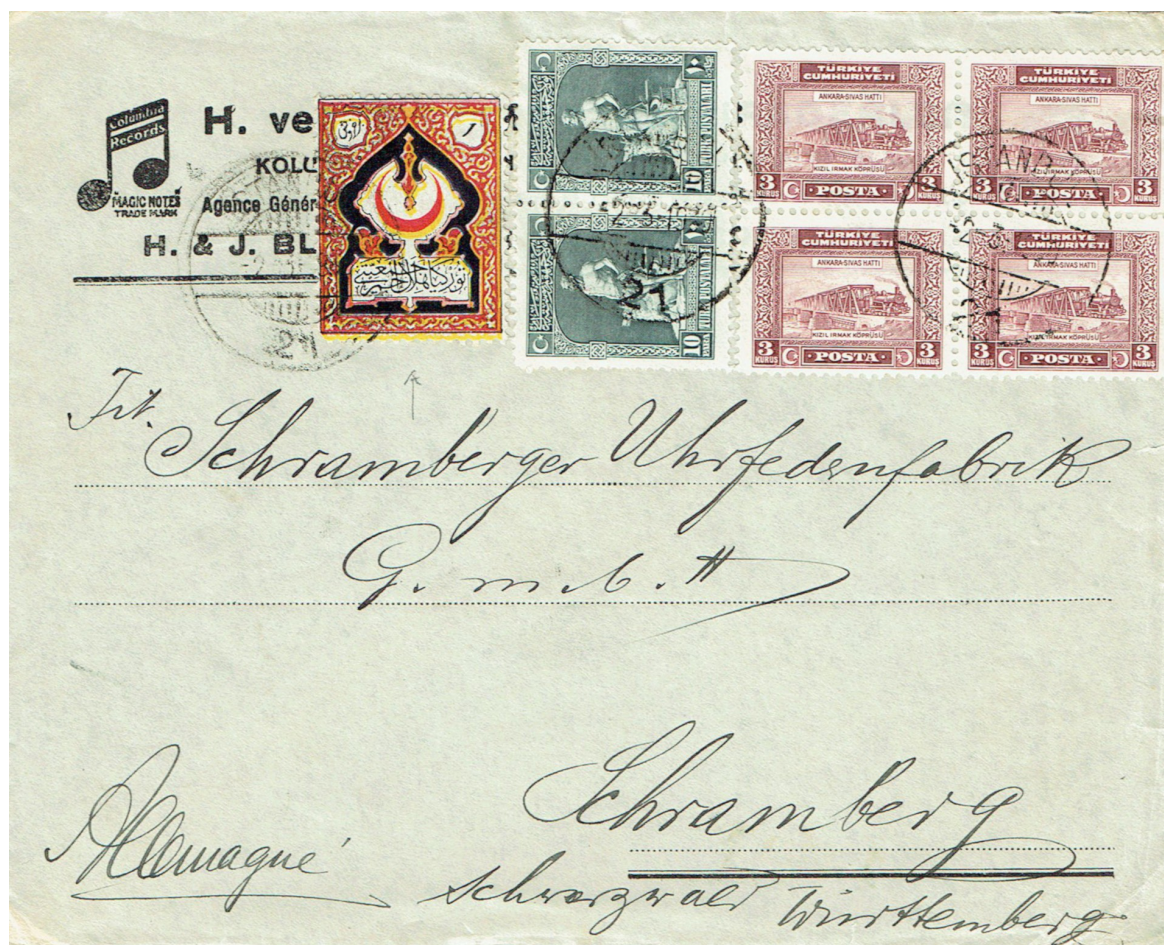 Columbia
Records
"MAGIC NOTES"
TRADE MARK
H. ve
KOLU
Agence Génér
H. & J. BL
١
10
TÜRK POSTALARI
10
TÜRK POSTALARI
TÜRKİYE
CUMHURİYETİ
ANKARA-SIVAS HATTI
KIZIL IRMAK KÖPRÜSÜ
3 KURUŞ POSTA 3 KURUŞ
TÜRKİYE
CUMHURİYETİ
ANKARA-SIVAS HATTI
KIZIL IRMAK KÖPRÜSÜ
3 KURUŞ POSTA 3 KURUŞ
TÜRKİYE
CUMHURİYETİ
ANKARA-SIVAS HATTI
KIZIL IRMAK KÖPRÜSÜ
3 KURUŞ POSTA 3 KURUŞ
TÜRKİYE
CUMHURİYETİ
ANKARA-SIVAS HATTI
KIZIL IRMAK KÖPRÜSÜ
3 KURUŞ POSTA 3 KURUŞ
21
21
Schramberger Uhrfedernfabrik
G.m.b.H
Schramberg
Allemagne
Schwarzwald Württemberg